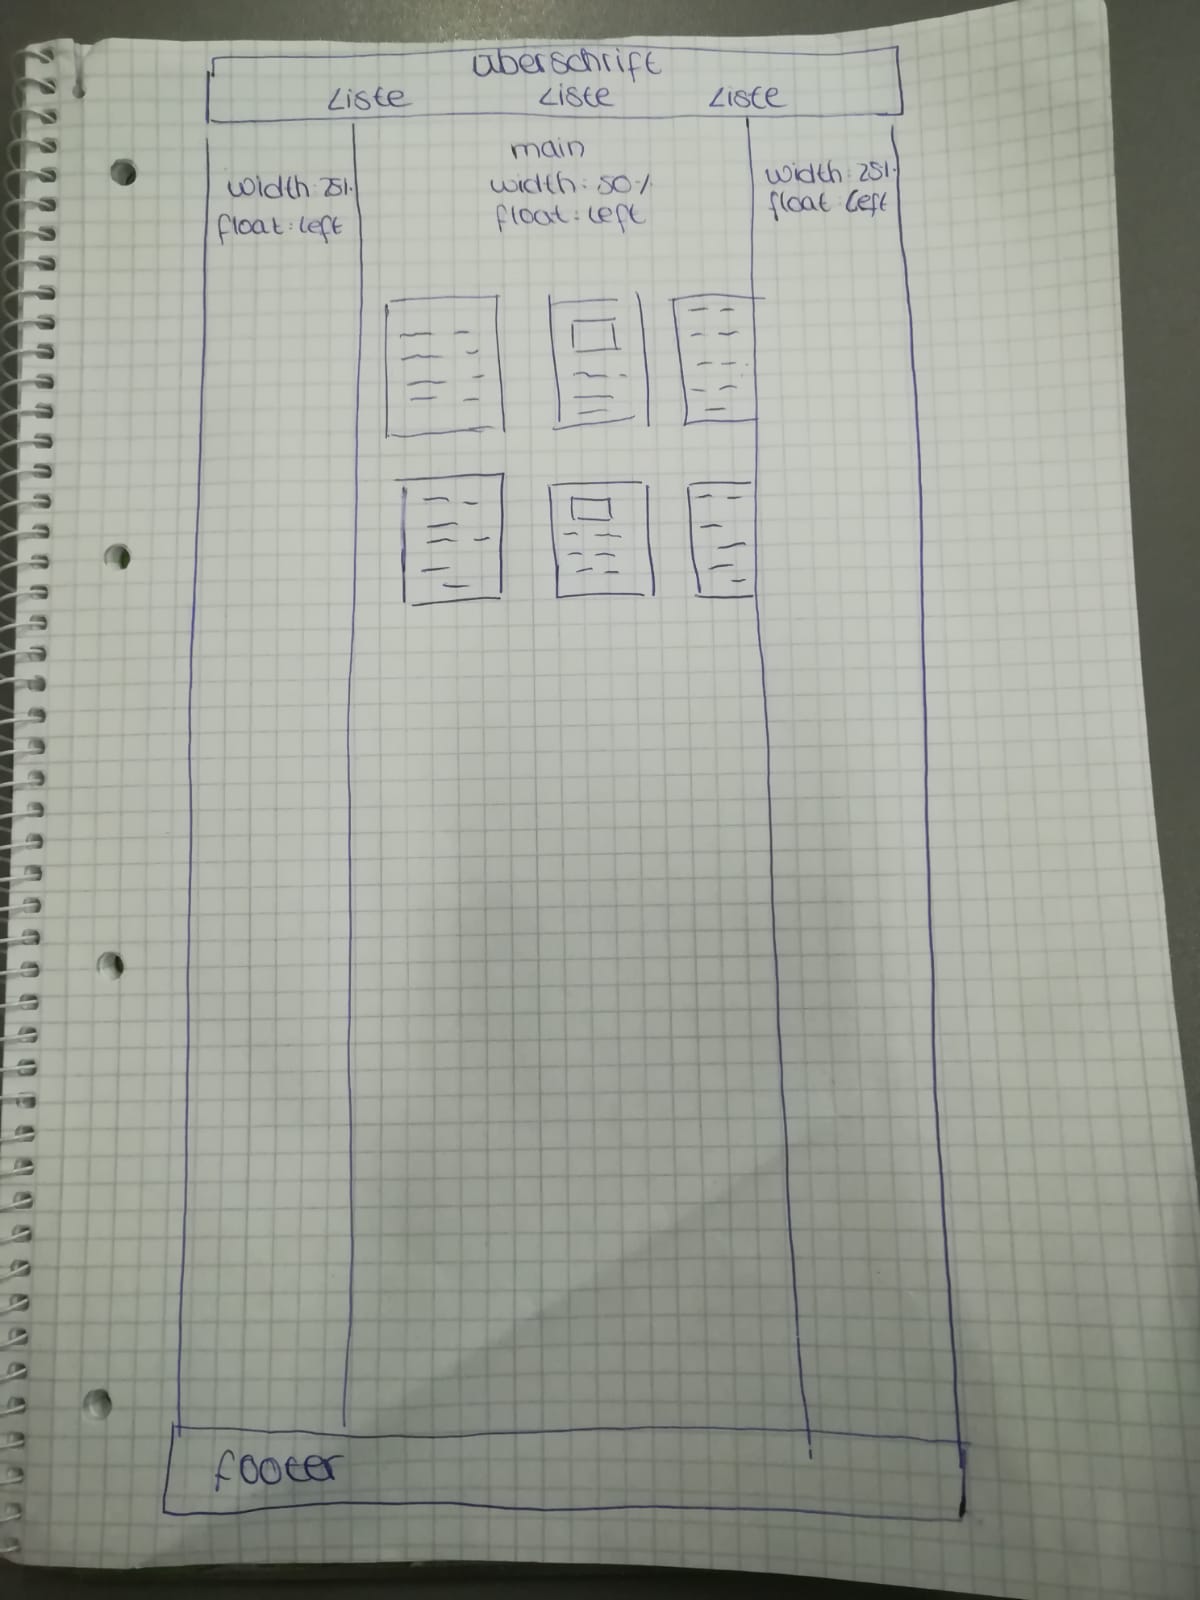 überschrift
Liste Liste Liste
main
width: 25%
float: left
width: 50%
float: left
width: 25%
float: left
footer